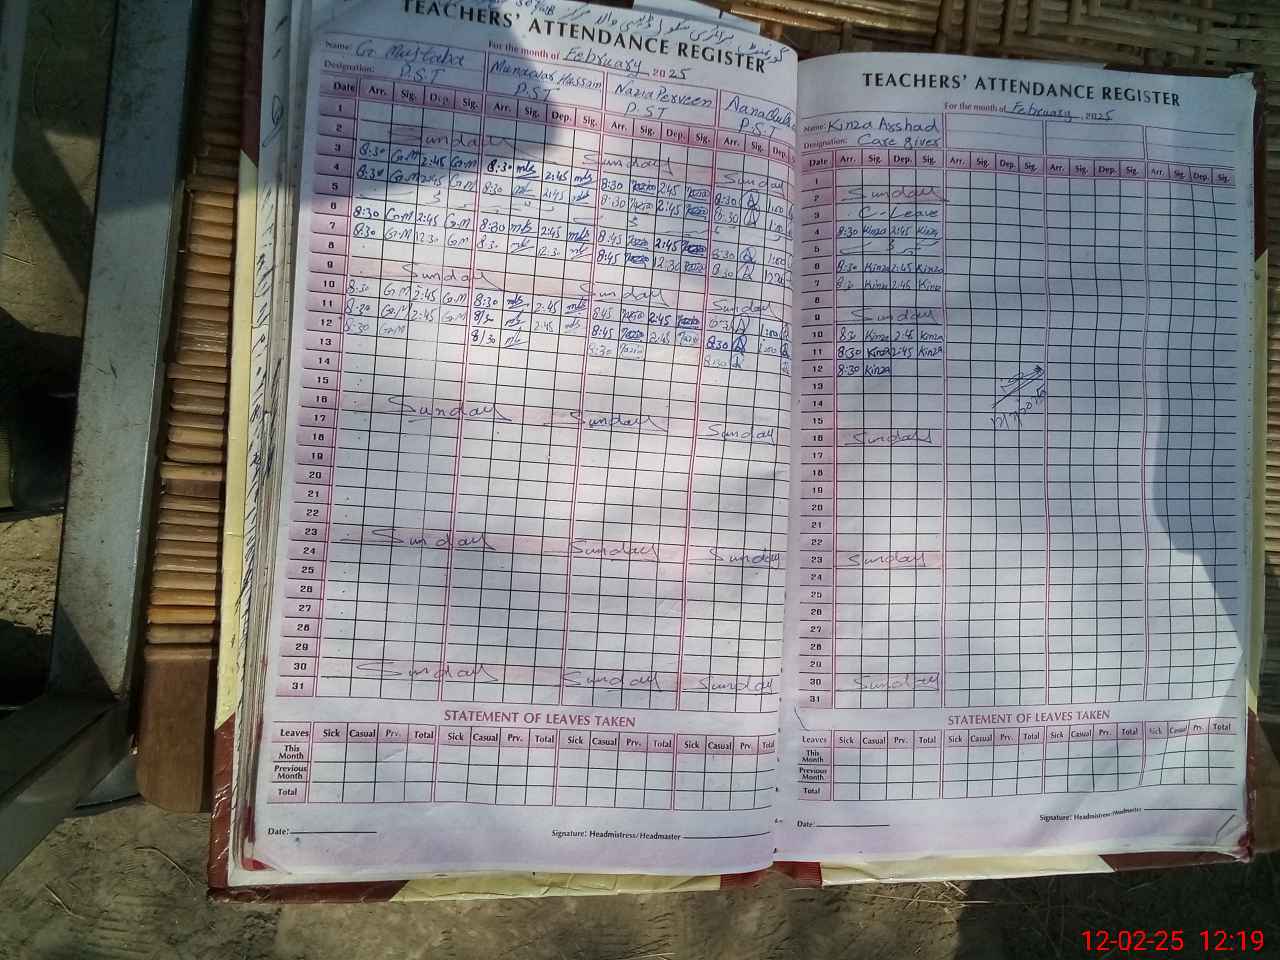 TEACHERS' ATTENDANCE REGISTER
For the month of February 2025
Name: G. Mujtaba Munawar Hussain Nazia Perveen
Designation: P.S.T P.ST P.ST P.S.T
Date Arr. Sig. Dep. Sig. Arr. Sig. Dep. Sig. Arr. Sig. Dep. Sig. Arr. Sig. Dep.
1
2 Sunday Sunday Sunday
3 8:30 G.M 2:45 G.M 8:30 2:45 8:30 2:45 8:30 1:00
4 8:30 G.M 2:45 G.M 8:30 2:45 8:30 2:45 8:30 1:00
5
6 8:30 G.M 2:45 G.M 8:30 2:45 8:45 2:45 8:30 1:00
7 8:30 G.M 12:30 G.M 8:30 12:30 8:45 12:30 8:30
8
9 Sunday Sunday Sunday
10 8:30 G.M 2:45 G.M 8:30 2:45 8:45 2:45 8:30 1:00
11 8:30 G.M 2:45 G.M 8/30 2:45 8:45 2:45 8:30 1:00
12 8:30 G.M 8/30 8:30 8:30
13
14
15
16 Sunday Sunday Sunday
17
18
19
20
21
23 Sunday Sunday Sunday
24
25
26
27
28
29
30 Sunday Sunday Sunday
31
STATEMENT OF LEAVES TAKEN
Leaves Sick Casual Prv. Total Sick Casual Prv. Total Sick Casual Prv. Total Sick Casual Prv. Total
This Month
Previous Month
Total
Date:
Signature: Headmistress/Headmaster
TEACHERS' ATTENDANCE REGISTER
For the month of February 2025
Name: Kinza Asshad
Designation: Care giver
Date Arr. Sig. Dep. Sig. Arr. Sig. Dep. Sig. Arr. Sig. Dep. Sig. Arr. Sig. Dep. Sig.
1
2 Sunday
3 C-Leave
4 8:30 Kinza 2:45 Kinza
5
6 8:30 Kinza 2:45 Kinza
7 8:30 Kinza 2:45 Kinza
8
9 Sunday
10 8:30 Kinza 2:45 Kinza
11 8:30 Kinza 2:45 Kinza
12 8:30 Kinza
13
14
15
16 Sunday
17
18
19
20
21
22
23 Sunday
24
25
26
27
28
29
30 Sunday
31
STATEMENT OF LEAVES TAKEN
Leaves Sick Casual Prv. Total Sick Casual Prv. Total Sick Casual Prv. Total Sick Casual Prv. Total
This Month
Previous Month
Total
Date:
Signature: Headmistress/Headmaster
12-02-25 12:19